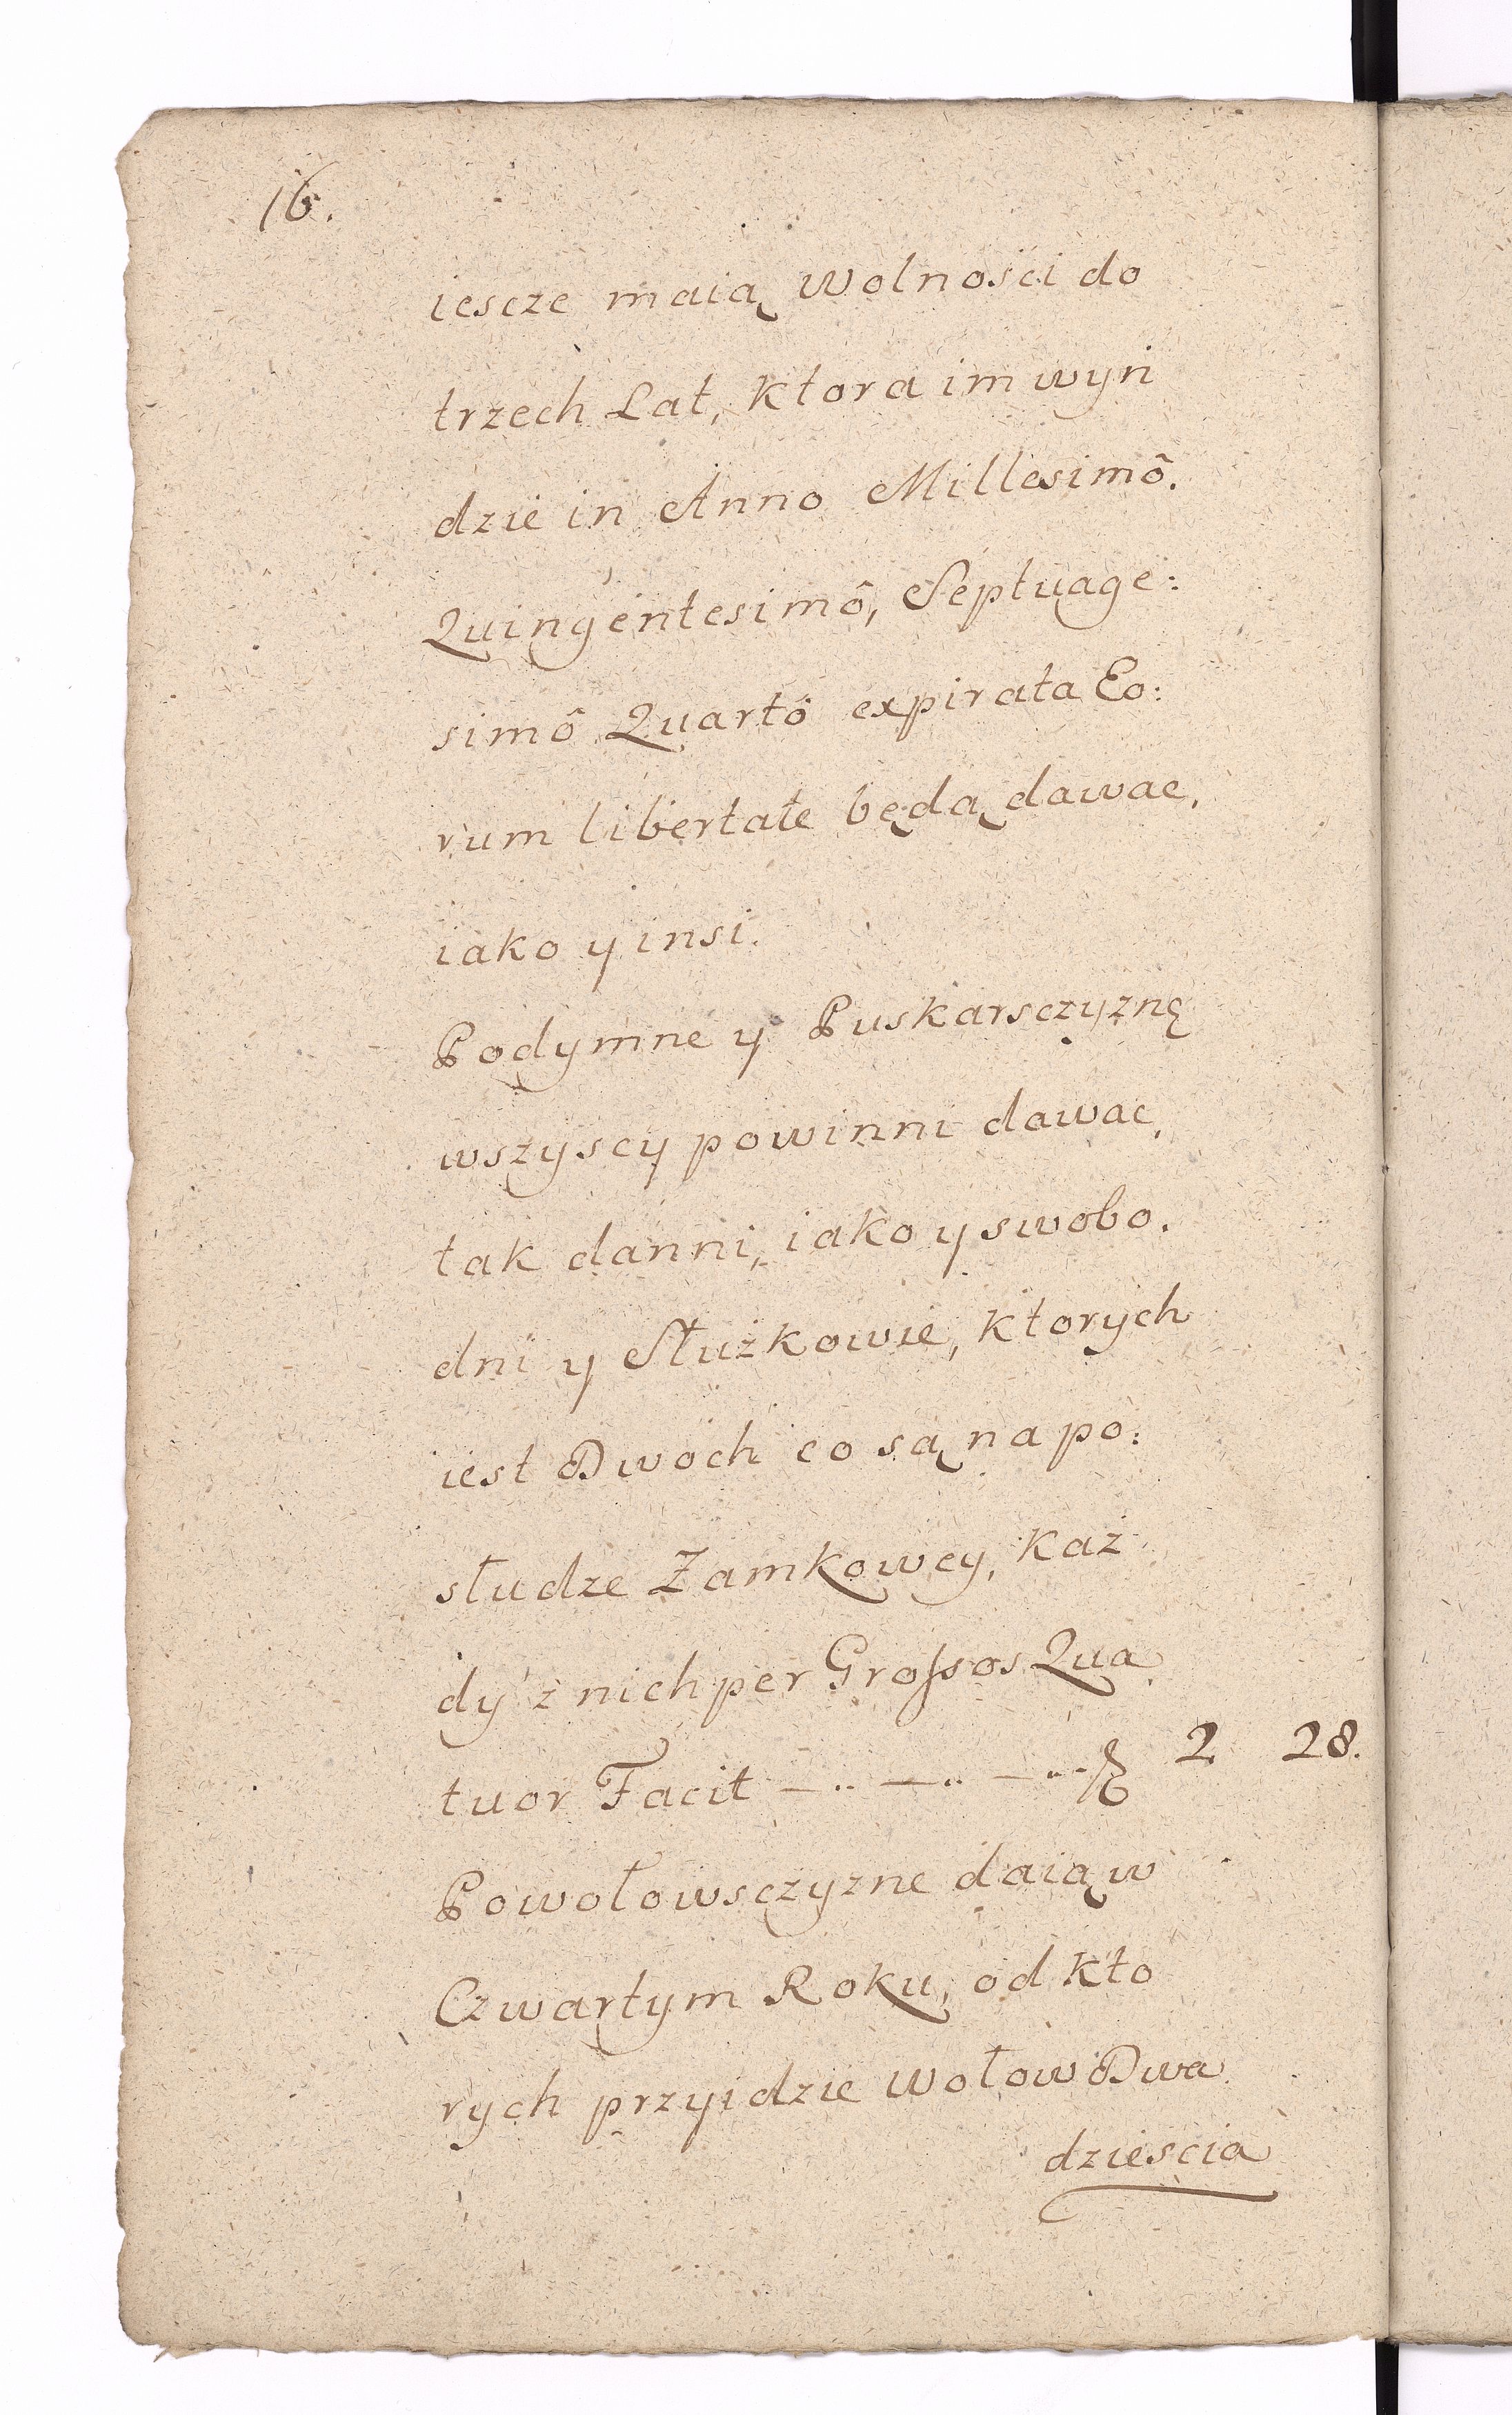 16.
iescze maią wolności do
trzech Lat, ktora im wyni
dzie in Anno Millesimô.
Quingentesimô, Septuage:
simô Quartô expirata Eo:
rum libertate będą dawac,
iako y insi.
Podymne y Puskarsczyznę
wszyscy powinni dawac,
tak danni, iako y swobo.
dni y Służkowie, ktorych
iest Dwoch co są na po:
słudze Zamkowey, kaz
dy z nich per Grossos Qua
tuor Facit 2 28.
Powołowsczyzne daią w
Czwartym Roku, od kto
rych przyidzie wołow Dwa
dziescia